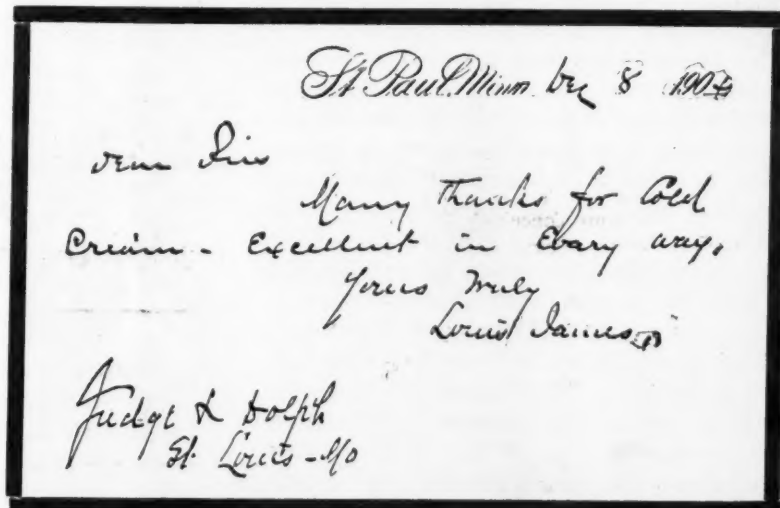 St Paul. Minn. Dec 8 1904
Dear Sirs
Many Thanks for Cold
Cream - Excellent in Every way.
Yours Truly
Louis James
Judge & Dolph
St. Louis - Mo